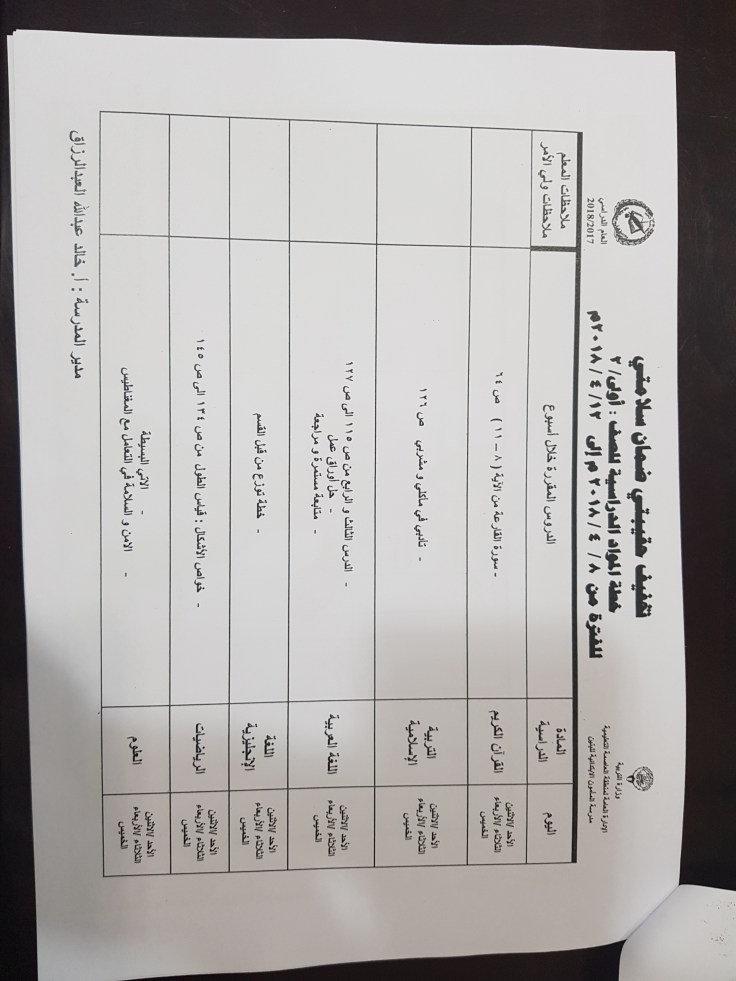 وزارة التربية
الإدارة العامة لمنطقة العاصمة التعليمية
العام الدراسي
2018/2017
تخفيف حقيبتي ضمان سلامتي
خطة المواد الدراسية للصف : أولى/ ٢
للفترة من ٨ / ٤ / ٢٠١٨م إلى ١٢ / ٤ / ٢٠١٨م
اليوم
المادة الدراسية
الدروس المقررة خلال أسبوع
ملاحظات المعلم
ملاحظات ولي الأمر
الأحد /الاثنين
الثلاثاء /الأربعاء
الخميس
القرآن الكريم
- سورة القارعة من الآية ( ٨ – ١١ ) ص ٦٤
الأحد /الاثنين
الثلاثاء /الأربعاء
الخميس
التربية
الإسلامية
- تأدبي في مأكلي و مشربي ص ١٢٦
الأحد /الاثنين
الثلاثاء /الأربعاء
الخميس
اللغة العربية
- الدرس الثالث و الرابع من ص ١١٥ الى ص ١٢٧
- حل أوراق عمل
- متابعة مستمرة و مراجعة
الأحد /الاثنين
الثلاثاء /الأربعاء
الخميس
اللغة
الإنجليزية
- خطة توزع من قبل القسم
الأحد /الاثنين
الثلاثاء /الأربعاء
الخميس
الرياضيات
- خواص الأشكال : قياس الطول من ص ١٣٤ الى ص ١٤٥
الأحد /الاثنين
الثلاثاء /الأربعاء
الخميس
العلوم
- الاتي البسيطة
- الامن و السلامة في التعامل مع المغناطيس
مدير المدرسة : أ. خالد عبدالله العبدالرزاق